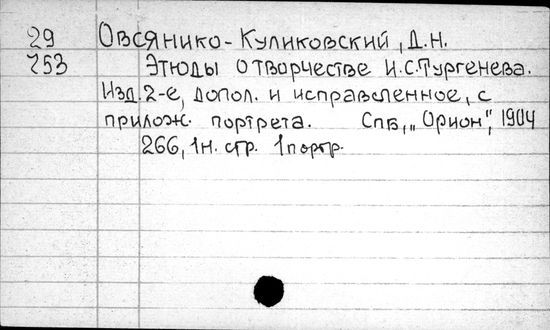 29 Овсянико-Куликовский, Д.Н.
253 Этюды о творчестве И.С.Тургенева.
Изд.2-е, допол. и исправленное, с
прилож. портрета. Спб, „Орион", 1904
266, 1н. стр. 1 портр.